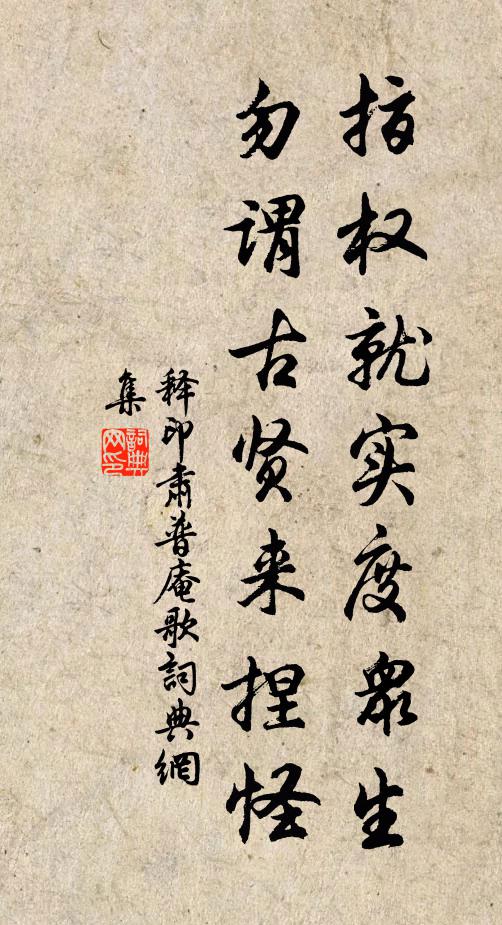 指权就实度眾生
勿谓古贤来捏怪
释印肃普庵歌詞典網
集
詞典
网印